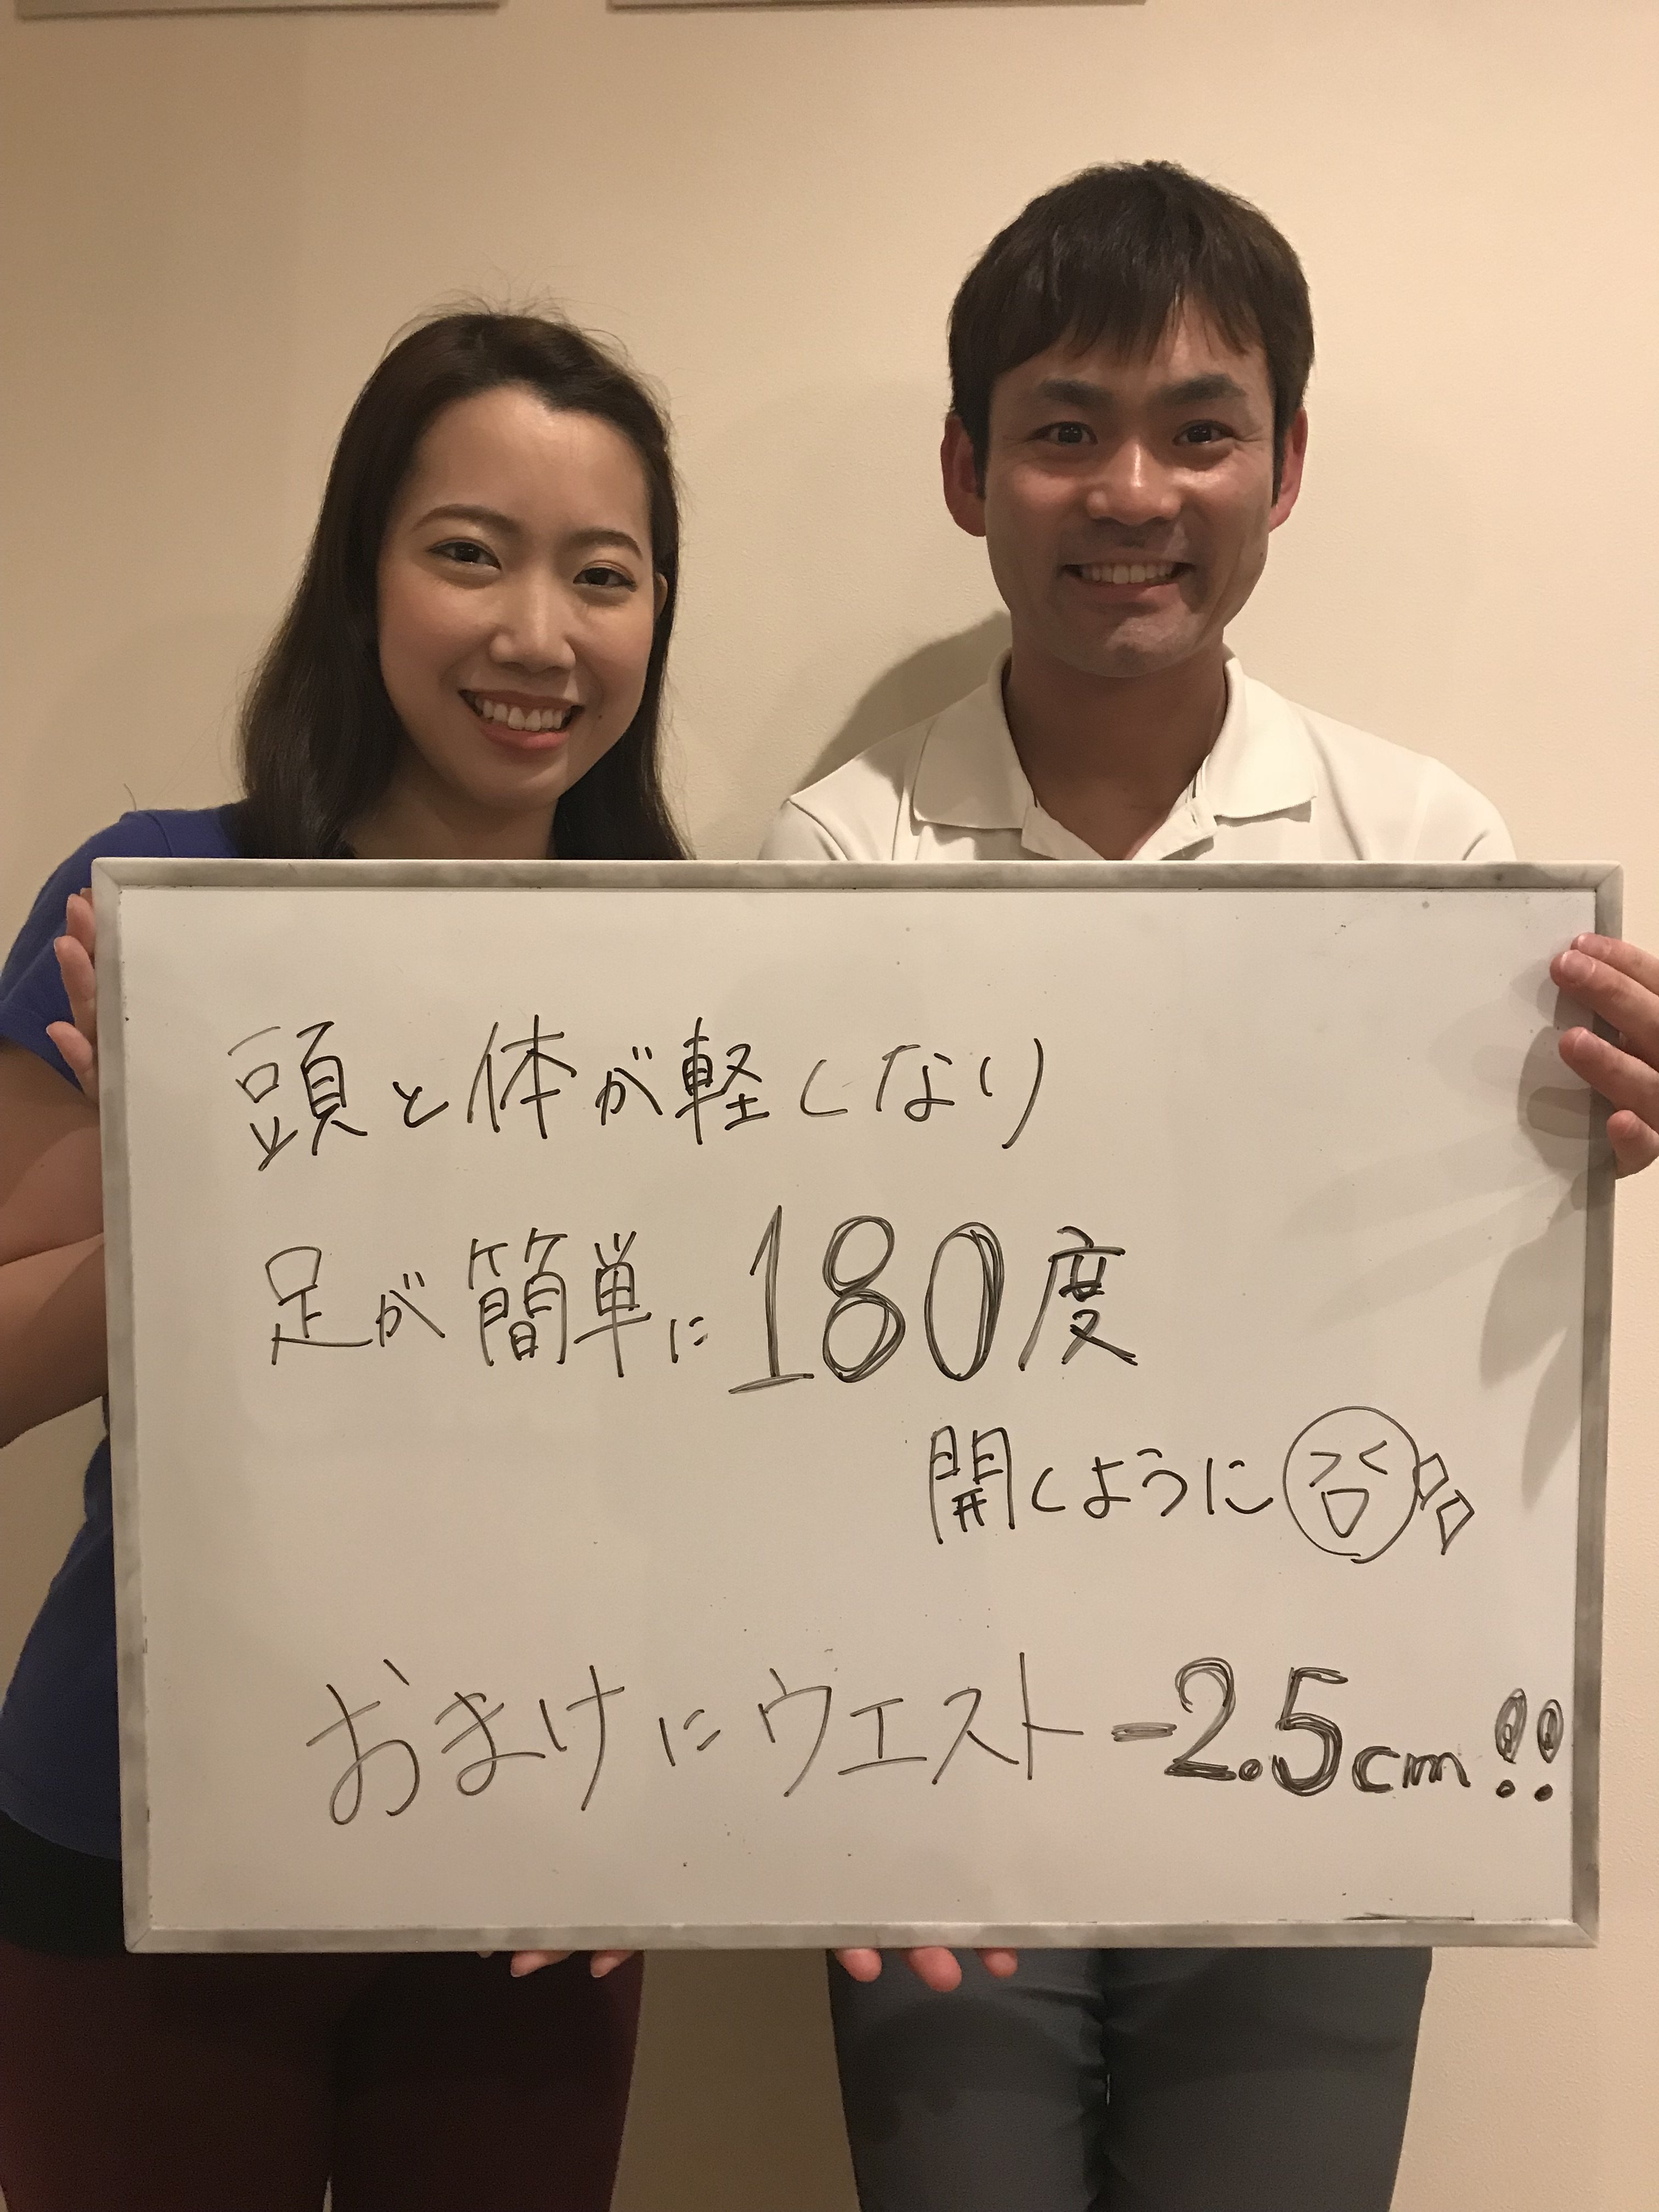 頭と体が軽くなり
足が簡単に180度
開くように
おまけにウエスト-2.5cm!!